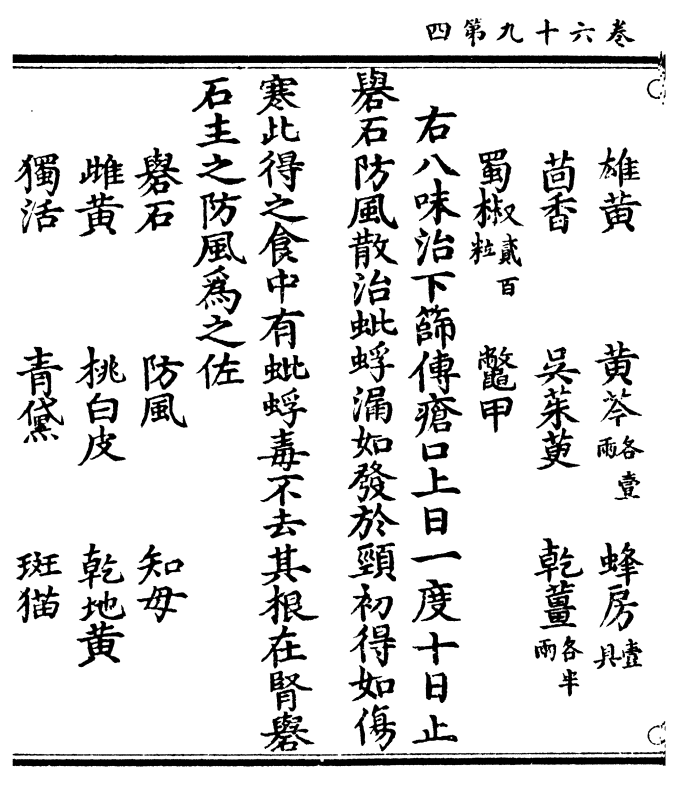 卷六十九第四
雄黄 黄芩各壹兩 蜂房壹具
茴香 吳茱萸 乾薑各半兩
蜀椒貳百粒 鼈甲
右八味治下篩傅瘡口上日一度十日止
礜石防風散治蚍蜉漏如發於頸初得如傷
寒此得之食中有蚍蜉毒不去其根在腎礜
石主之防風爲之佐
礜石 防風 知母
雌黄 桃白皮 乾地黄
獨活 青黛 斑猫